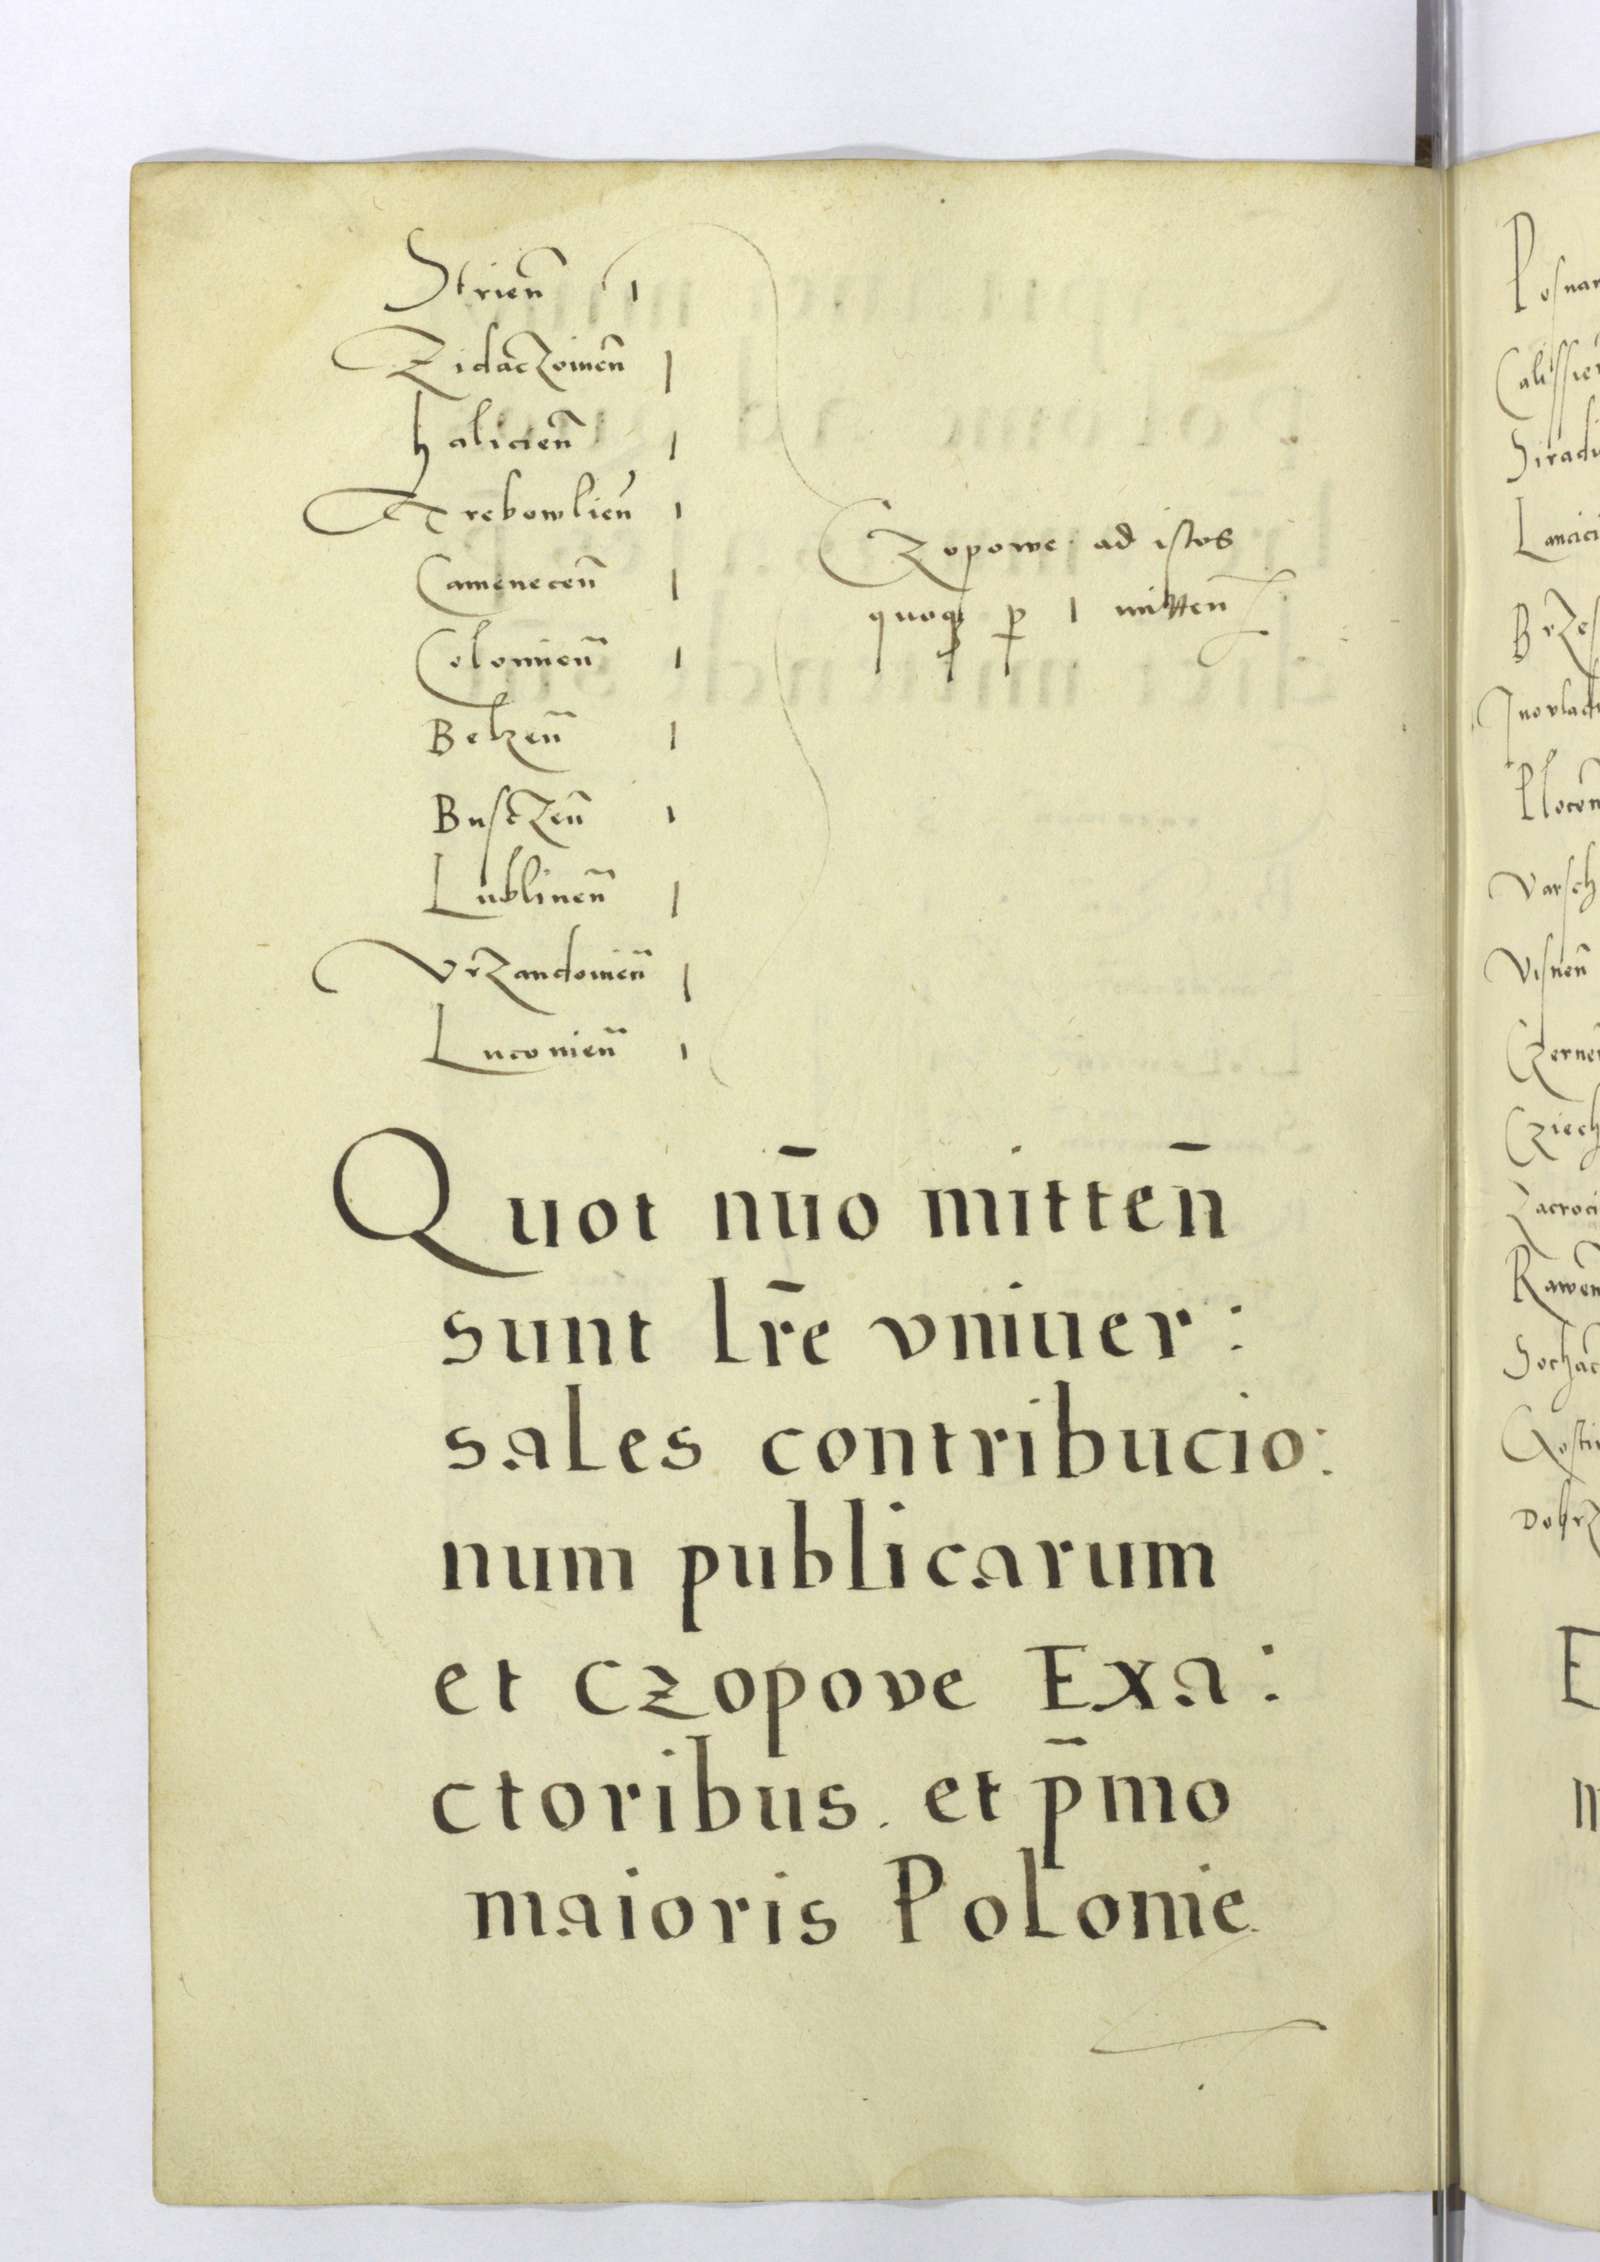 Strien̄ 1
Zidaczouien̄ 1
Halicien̄ 1
Trebowlien̄ 1
Camenecen̄ 1
Colomien̄ 1
Belzen̄ 1
Busczen̄ 1
Lublinen̄ 1
Vrzandouien̄ 1
Lucouien̄ 1
Czopowe ad istos
quoqꝫ ꝑ 1 mitten̄
Quot nūo mitten̄
sunt lr̄e vniuer:
sales contribucio:
num publicarum
et czopove Exa:
ctoribus. et p̄mo
maioris Polonie
Posnan
Calissien
Siradi
Lancici
Brzes
Inovlad
Plocen
Varsch
Visnen̄
Czernen
Cziech
Zacroci
Rawen
Sochac
Gostin
Dobrz
E